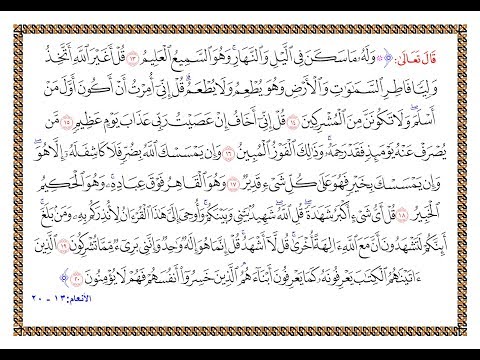 قَالَ تَعَالَىٰ: ﴿ ۞ وَلَهُۥ مَا سَكَنَ فِى ٱلَّيْلِ وَٱلنَّهَارِ ۚ وَهُوَ ٱلسَّمِيعُ ٱلْعَلِيمُ ١٣ قُلْ أَغَيْرَ ٱللَّهِ أَتَّخِذُ
وَلِيًّا فَاطِرِ ٱلسَّمَـٰوَٰتِ وَٱلْأَرْضِ وَهُوَ يُطْعِمُ وَلَا يُطْعَمُ ۗ قُلْ إِنِّىٓ أُمِرْتُ أَنْ أَكُونَ أَوَّلَ مَنْ
أَسْلَمَ ۖ وَلَا تَكُونَنَّ مِنَ ٱلْمُشْرِكِينَ ١٤ قُلْ إِنِّىٓ أَخَافُ إِنْ عَصَيْتُ رَبِّى عَذَابَ يَوْمٍ عَظِيمٍ ١٥ مَّن
يُصْرَفْ عَنْهُ يَوْمَئِذٍ فَقَدْ رَحِمَهُۥ ۚ وَذَٰلِكَ ٱلْفَوْزُ ٱلْمُبِينُ ١٦ وَإِن يَمْسَسْكَ ٱللَّهُ بِضُرٍّ فَلَا كَاشِفَ لَهُۥٓ إِلَّا هُوَ ۖ
وَإِن يَمْسَسْكَ بِخَيْرٍ فَهُوَ عَلَىٰ كُلِّ شَىْءٍ قَدِيرٌ ١٧ وَهُوَ ٱلْقَاهِرُ فَوْقَ عِبَادِهِۦ ۚ وَهُوَ ٱلْحَكِيمُ
ٱلْخَبِيرُ ١٨ قُلْ أَىُّ شَىْءٍ أَكْبَرُ شَهَـٰدَةً ۖ قُلِ ٱللَّهُ ۖ شَهِيدٌۢ بَيْنِى وَبَيْنَكُمْ ۚ وَأُوحِىَ إِلَىَّ هَـٰذَا ٱلْقُرْءَانُ لِأُنذِرَكُم بِهِۦ وَمَنۢ بَلَغَ ۚ
أَئِنَّكُمْ لَتَشْهَدُونَ أَنَّ مَعَ ٱللَّهِ ءَالِهَةً أُخْرَىٰ ۚ قُل لَّآ أَشْهَدُ ۚ قُلْ إِنَّمَا هُوَ إِلَـٰهٌ وَٰحِدٌ وَإِنَّنِى بَرِىٓءٌ مِّمَّا تُشْرِكُونَ ١٩ ٱلَّذِينَ
ءَاتَيْنَـٰهُمُ ٱلْكِتَـٰبَ يَعْرِفُونَهُۥ كَمَا يَعْرِفُونَ أَبْنَآءَهُمُ ۘ ٱلَّذِينَ خَسِرُوٓا۟ أَنفُسَهُمْ فَهُمْ لَا يُؤْمِنُونَ ٢٠ ﴾
الأنعام: ١٣ - ٢٠